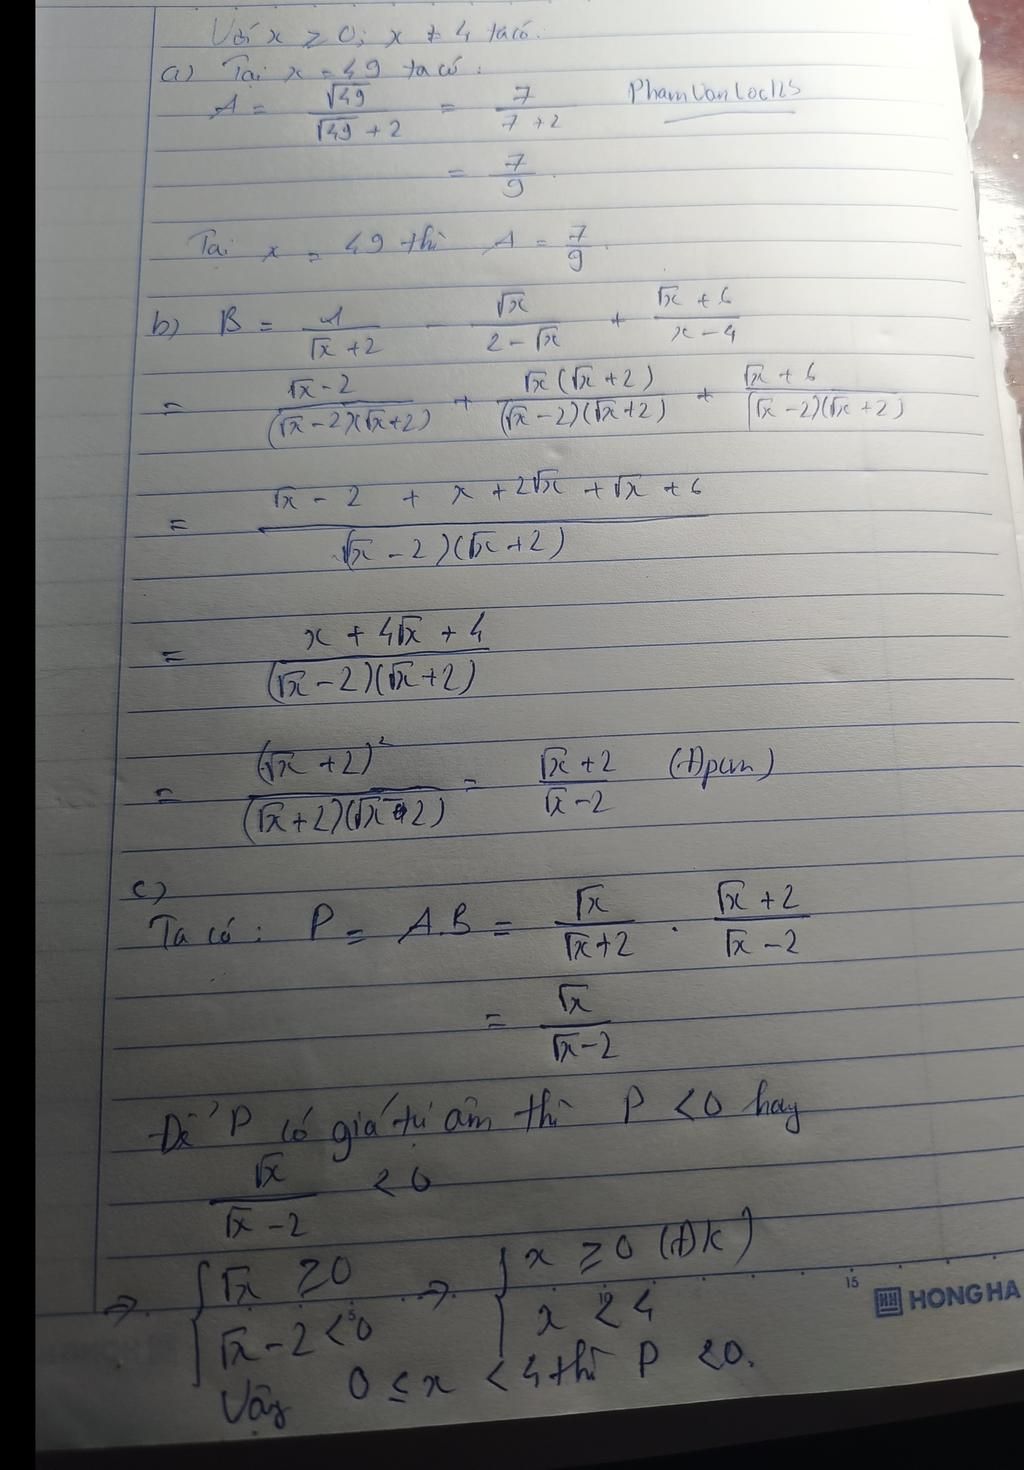 Với x ≥ 0; x ≠ 4 ta có:
a) Tại x = 49 ta có:
A = √49 / (√49 + 2) = 7 / (7 + 2)
PhamVanLoc125
= 7/9.
Tại x = 49 thì A = 7/9.
b) B = 1 / (√x + 2) - √x / (2 - √x) + (√x + 6) / (x - 4)
= (√x - 2) / ((√x - 2)(√x + 2)) + √x(√x + 2) / ((√x - 2)(√x + 2)) + (√x + 6) / ((√x - 2)(√x + 2))
= (√x - 2 + x + 2√x + √x + 6) / ((√x - 2)(√x + 2))
= (x + 4√x + 4) / ((√x - 2)(√x + 2))
= (√x + 2)² / ((√x + 2)(√x - 2)) = (√x + 2) / (√x - 2) (Đpcm)
c)
Ta có: P = A.B = √x / (√x + 2) . (√x + 2) / (√x - 2)
= √x / (√x - 2)
Để P có giá trị âm thì P < 0 hay
√x / (√x - 2) < 0
⇒ { √x ≥ 0 ⇒ { x ≥ 0 (Đk)
√x - 2 < 0 x < 4
Vậy 0 ≤ x < 4 thì P < 0.
5 10 15
HH HONG HA